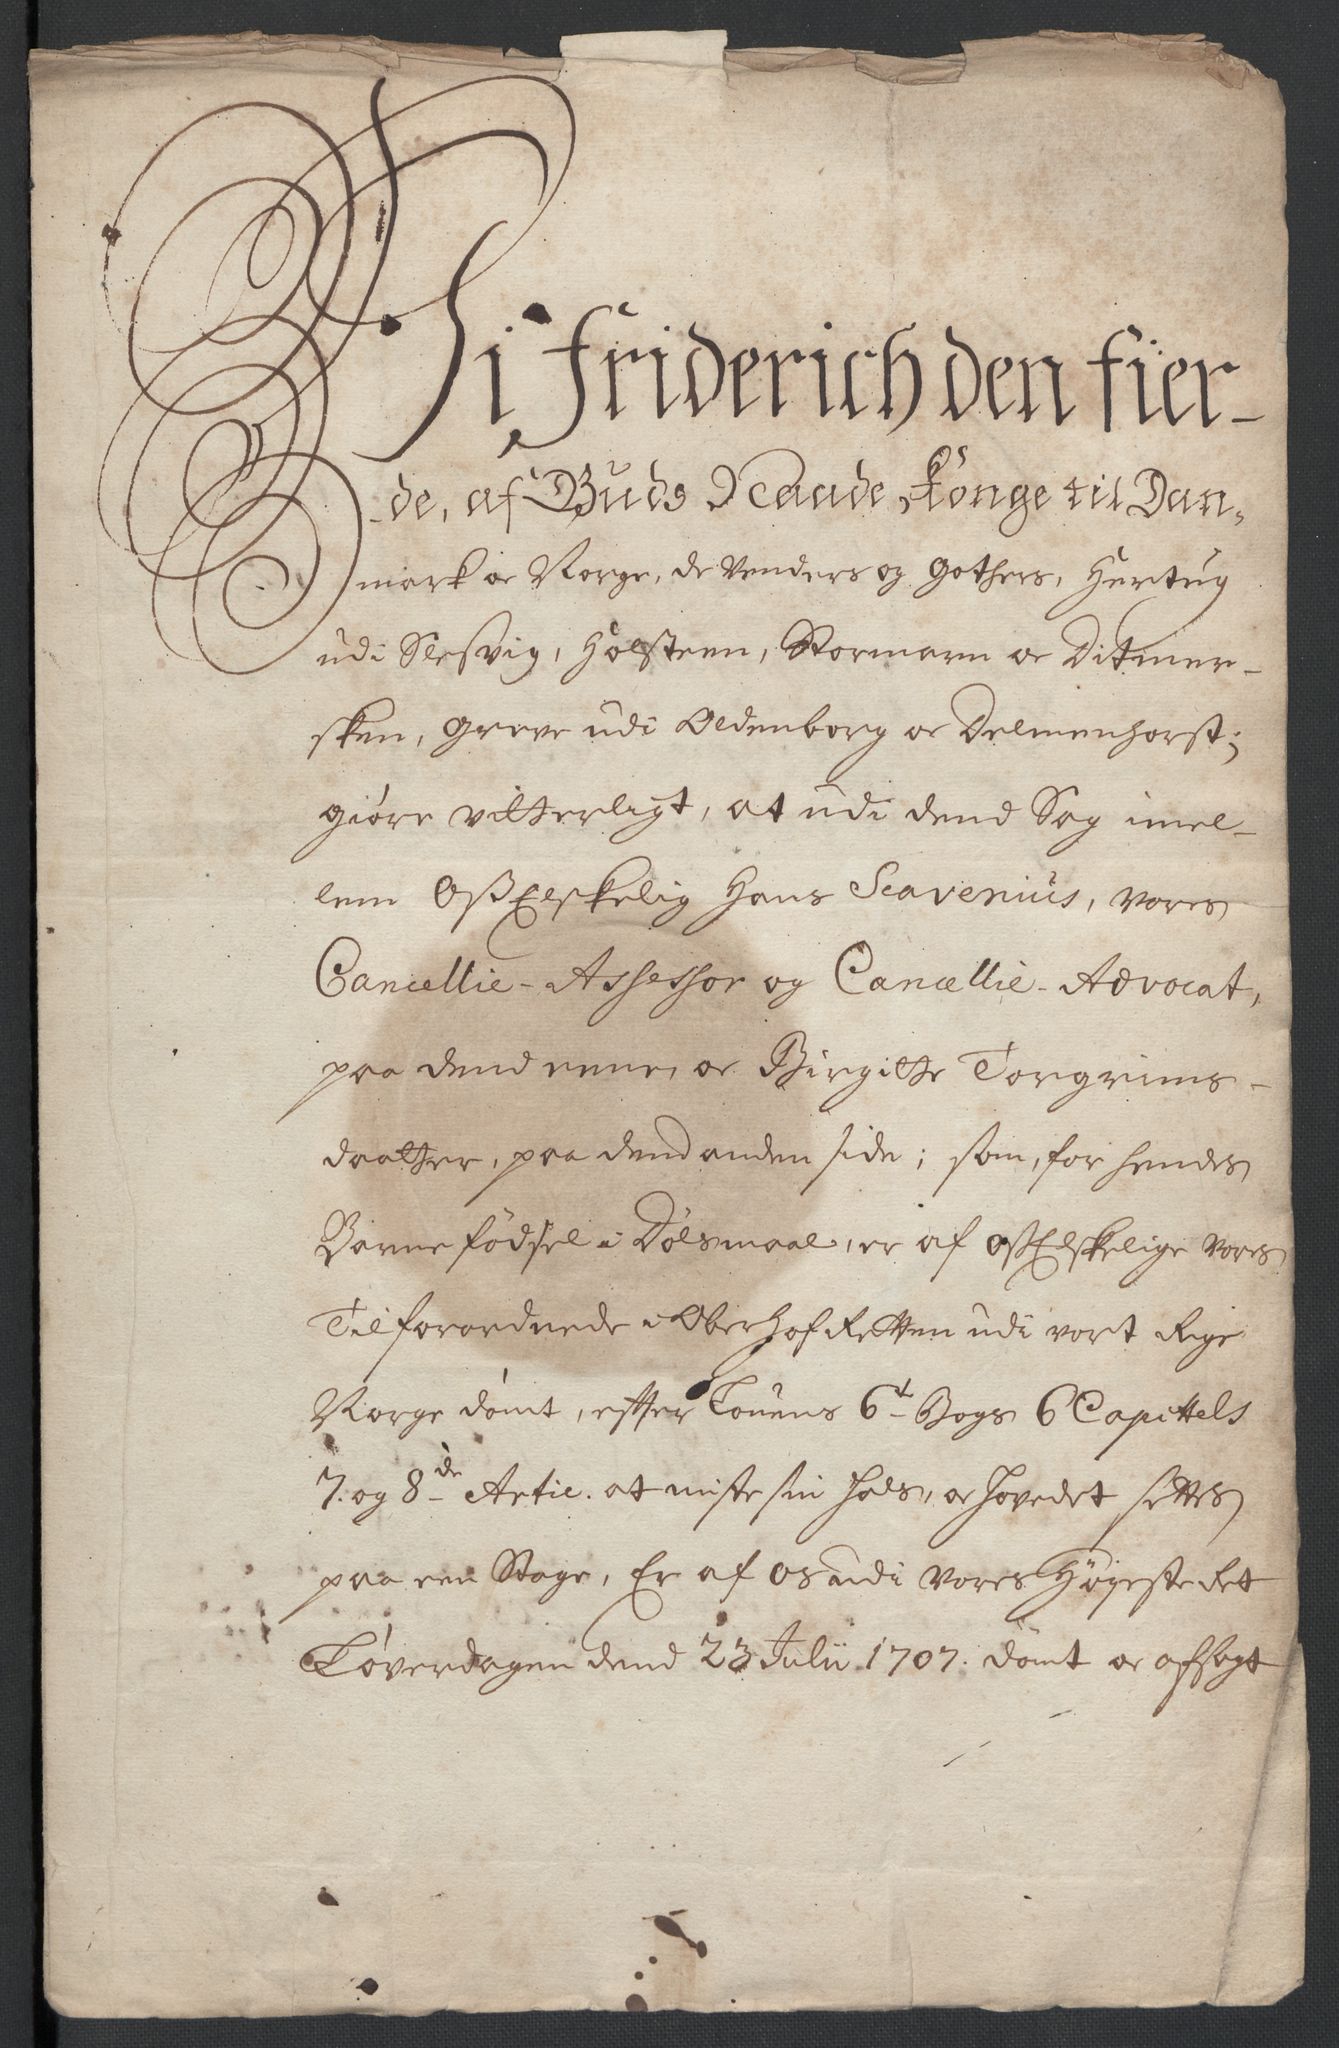 Vi Friderich den fier-
de, af Guds Naade, Konge til Dan-
mark oc Norge, de Venders og Gothers, Hertug
udi Slesvig, Holsteen, Stormarn oc Ditmer-
sken, Greve udi Oldenborg oc Delmenhorst;
giøre vitterligt, at udi dend Sag imel-
lem Oß Elskelig Hans Scavenius, Vores
Cancellie-Assessor og Cancellie-Advocat,
paa dend eene, oc Birgitte Torgrims-
daatter, paa dend anden side; som, for hendes
Barne fødsel i Dølsmaal, er af Oß Elskelige Vores
Tilforordnede i OberHofRetten udi vort Rige
Norge dømt, effter Louens 6t Bogs 6 Capittels
7. og 8de Artic. at miste sin Hals, oc hovedet settes
paa een Stage, Er af Os udi Vores Høyeste Ret
Løverdagen dend 23 Julii 1707. dømt oc afsagt